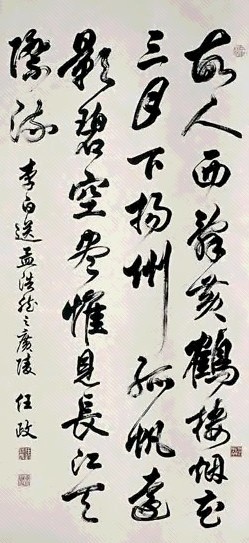 故人西辞黄鹤楼烟花
三月下扬州孤帆远
影碧空尽惟见长江天
际流
李白送孟浩然之广陵 任政